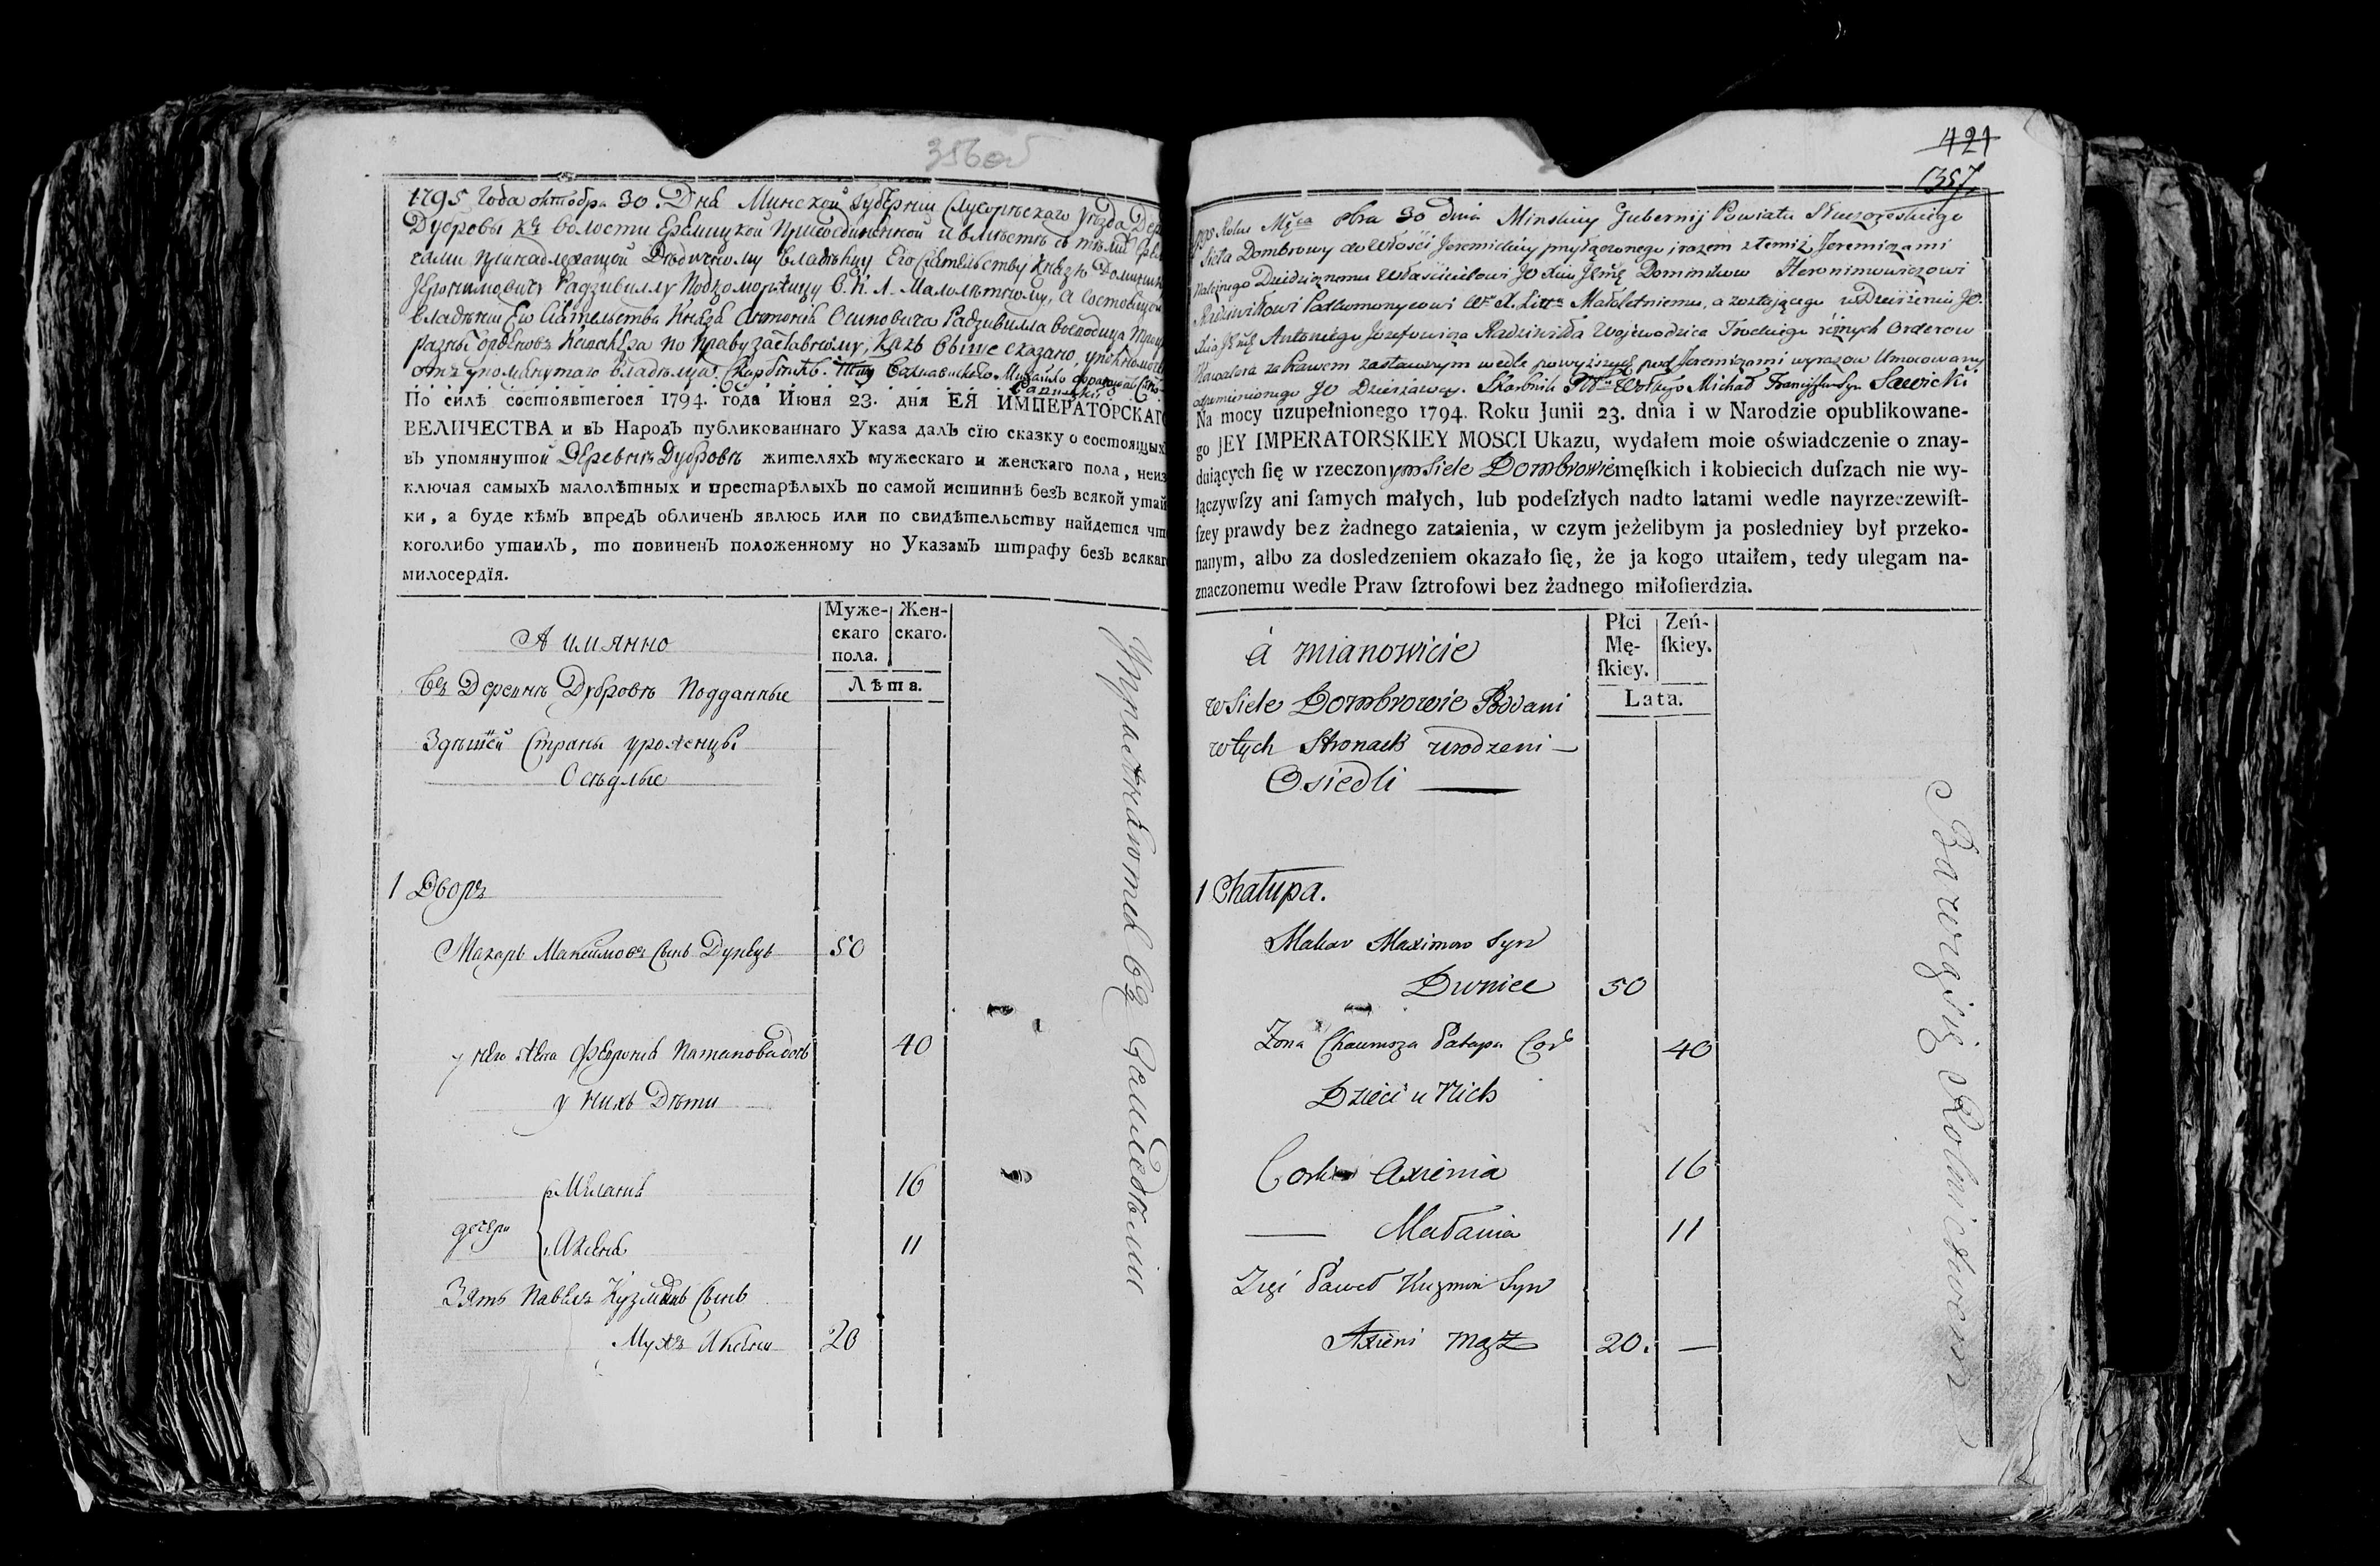 356 об
1795 года октобра 30. Дня Минской Губернии Слуцорѣскаго Уѣзда Дер
Дубровы къ волости Еремицкой присоединенной и вмѣстѣ съ тѣми
принадлежащой Дѣдичному владѣльцу Его Сіятельству Князю Доминик
Геронимовичу Радзивиллу Подкоморжицу В. К. Л. Малолѣтному, а состоящей
владѣнии Его Сіятельства Князя Антонія Осиповича Радзивилла воеводица
разныхъ орденовъ Кавалера по праву заставному, какъ выше сказано,
отъ упомянутаго владѣльца Скарбникъ Михайло
По силѣ состоявшегося 1794. года Июня 23. дня ЕЯ ИМПЕРАТОРСКАГ
ВЕЛИЧЕСТВА и въ Народъ публикованнаго Указа далъ сїю сказку о состоящых
въ упомянутой Деревнѣ Дубровѣ жителяхъ мужескаго и женскаго пола, неиз
ключая самыхъ малолѣтныхъ и престарѣлыхъ по самой истиннѣ безъ всякой утай
ки, а буде кѣмъ впредъ обличенъ явлюсь или по свидѣтельству найдется что
коголибо утаилъ, то повиненъ положенному по Указамъ штрафу безъ всякаг
милосердїя.
Муже-скаго пола. Жен-скаго.
Лѣта.
А имянно
Въ Деревнѣ Дубровѣ Подданные
Здѣшней Страны уроженцы
Осѣдлые
1 Дворъ
Макаръ Максимовъ Сынъ Дунецъ 50
у него жена Патапова дочь 40
у нихъ Дѣти
дочери Меланья 16
Аксеня 11
Зять Павелъ Кузминъ Сынъ
Мужъ Аксени 20
Упражняются въ
421
357
1795 Roku Mca 8bra 30 dnia Minskiey Gubernij Powiatu Słuczoreskiego
Sioła Dombrowy do Włości Jeremickiey przyłączonego, i razem z temiż Jeremiczami
należnego Dziedzicznemu Właścicielowi JO Xciu Jmci Dominikow Heronimowiczowi
Radziwiłłowi Podkomorzycowi W. X. Litt Małoletniemu, a zostaiącego w Dzierżeniu JO.
Xcia Jmci Antoniego Jozefowicza Radziwiłła Woiewodzica Trockiego rożnych Orderow
Kawalera za Prawem zastawnym wedle powyższych pod Jeremiczami wyrazow Umocowany
od pomienionego JO Dzierżawcy. Skarbnik Michał Franciszka Syn Sawicki
Na mocy uzupełnionego 1794. Roku Junii 23. dnia i w Narodzie opublikowane-
go JEY IMPERATORSKIEY MOSCI Ukazu, wydałem moie oświadczenie o znay-
duiących ſię w rzeczonym Siele Dombrowie męſkich i kobiecich duſzach nie wy-
łączywſzy ani ſamych małych, lub podeſzłych nadto latami wedle nayrzeczewiſt-
ſzey prawdy bez żadnego zataienia, w czym jeżelibym ja posledniey był przeko-
nanym, albo za dosledzeniem okazało ſię, że ja kogo utaiłem, tedy ulegam na-
znaczonemu wedle Praw ſztrofowi bez żadnego miłoſierdzia.
Płci Mę-ſkiey. Zeń-ſkiey.
Lata.
á mianowicie
w Siele Dombrowie Poddani
w tych Stronach urodzeni —
Osiedli —
1 Chałupa.
Makar Maximow Syn
Duniec 50
Zona Patapa Cor 40
Dzieci u Nich
Corka Axienia 16
— Małania 11
Zięć Paweł Kuzmin Syn
Axieni mąż 20. —
Bawią się Rolnictwem